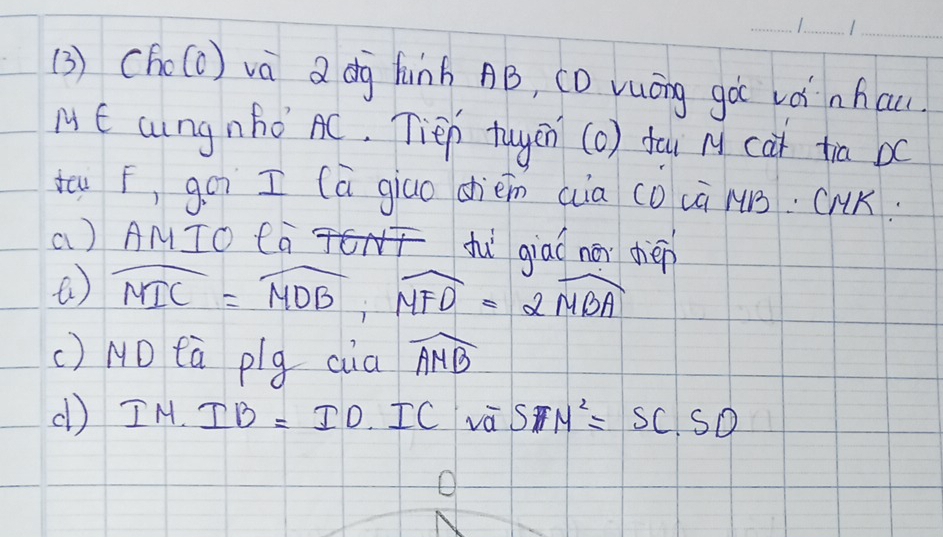 (3) Cho (O) và 2 đg kính AB, CD vuông góc với nhau.
M ∈ cung nhỏ AC. Tiếp tuyến (O) tại M cắt tia DC
tại F, gọi I là giao điểm của CD và MB. CMR:
a) AMIO là TGNT tứ giác nội tiếp
b) MIC = MDB, MFD = 2 MBA
c) MD là p/g của AMB
d) IM. IB = ID. IC và SM² = SC. SD
D